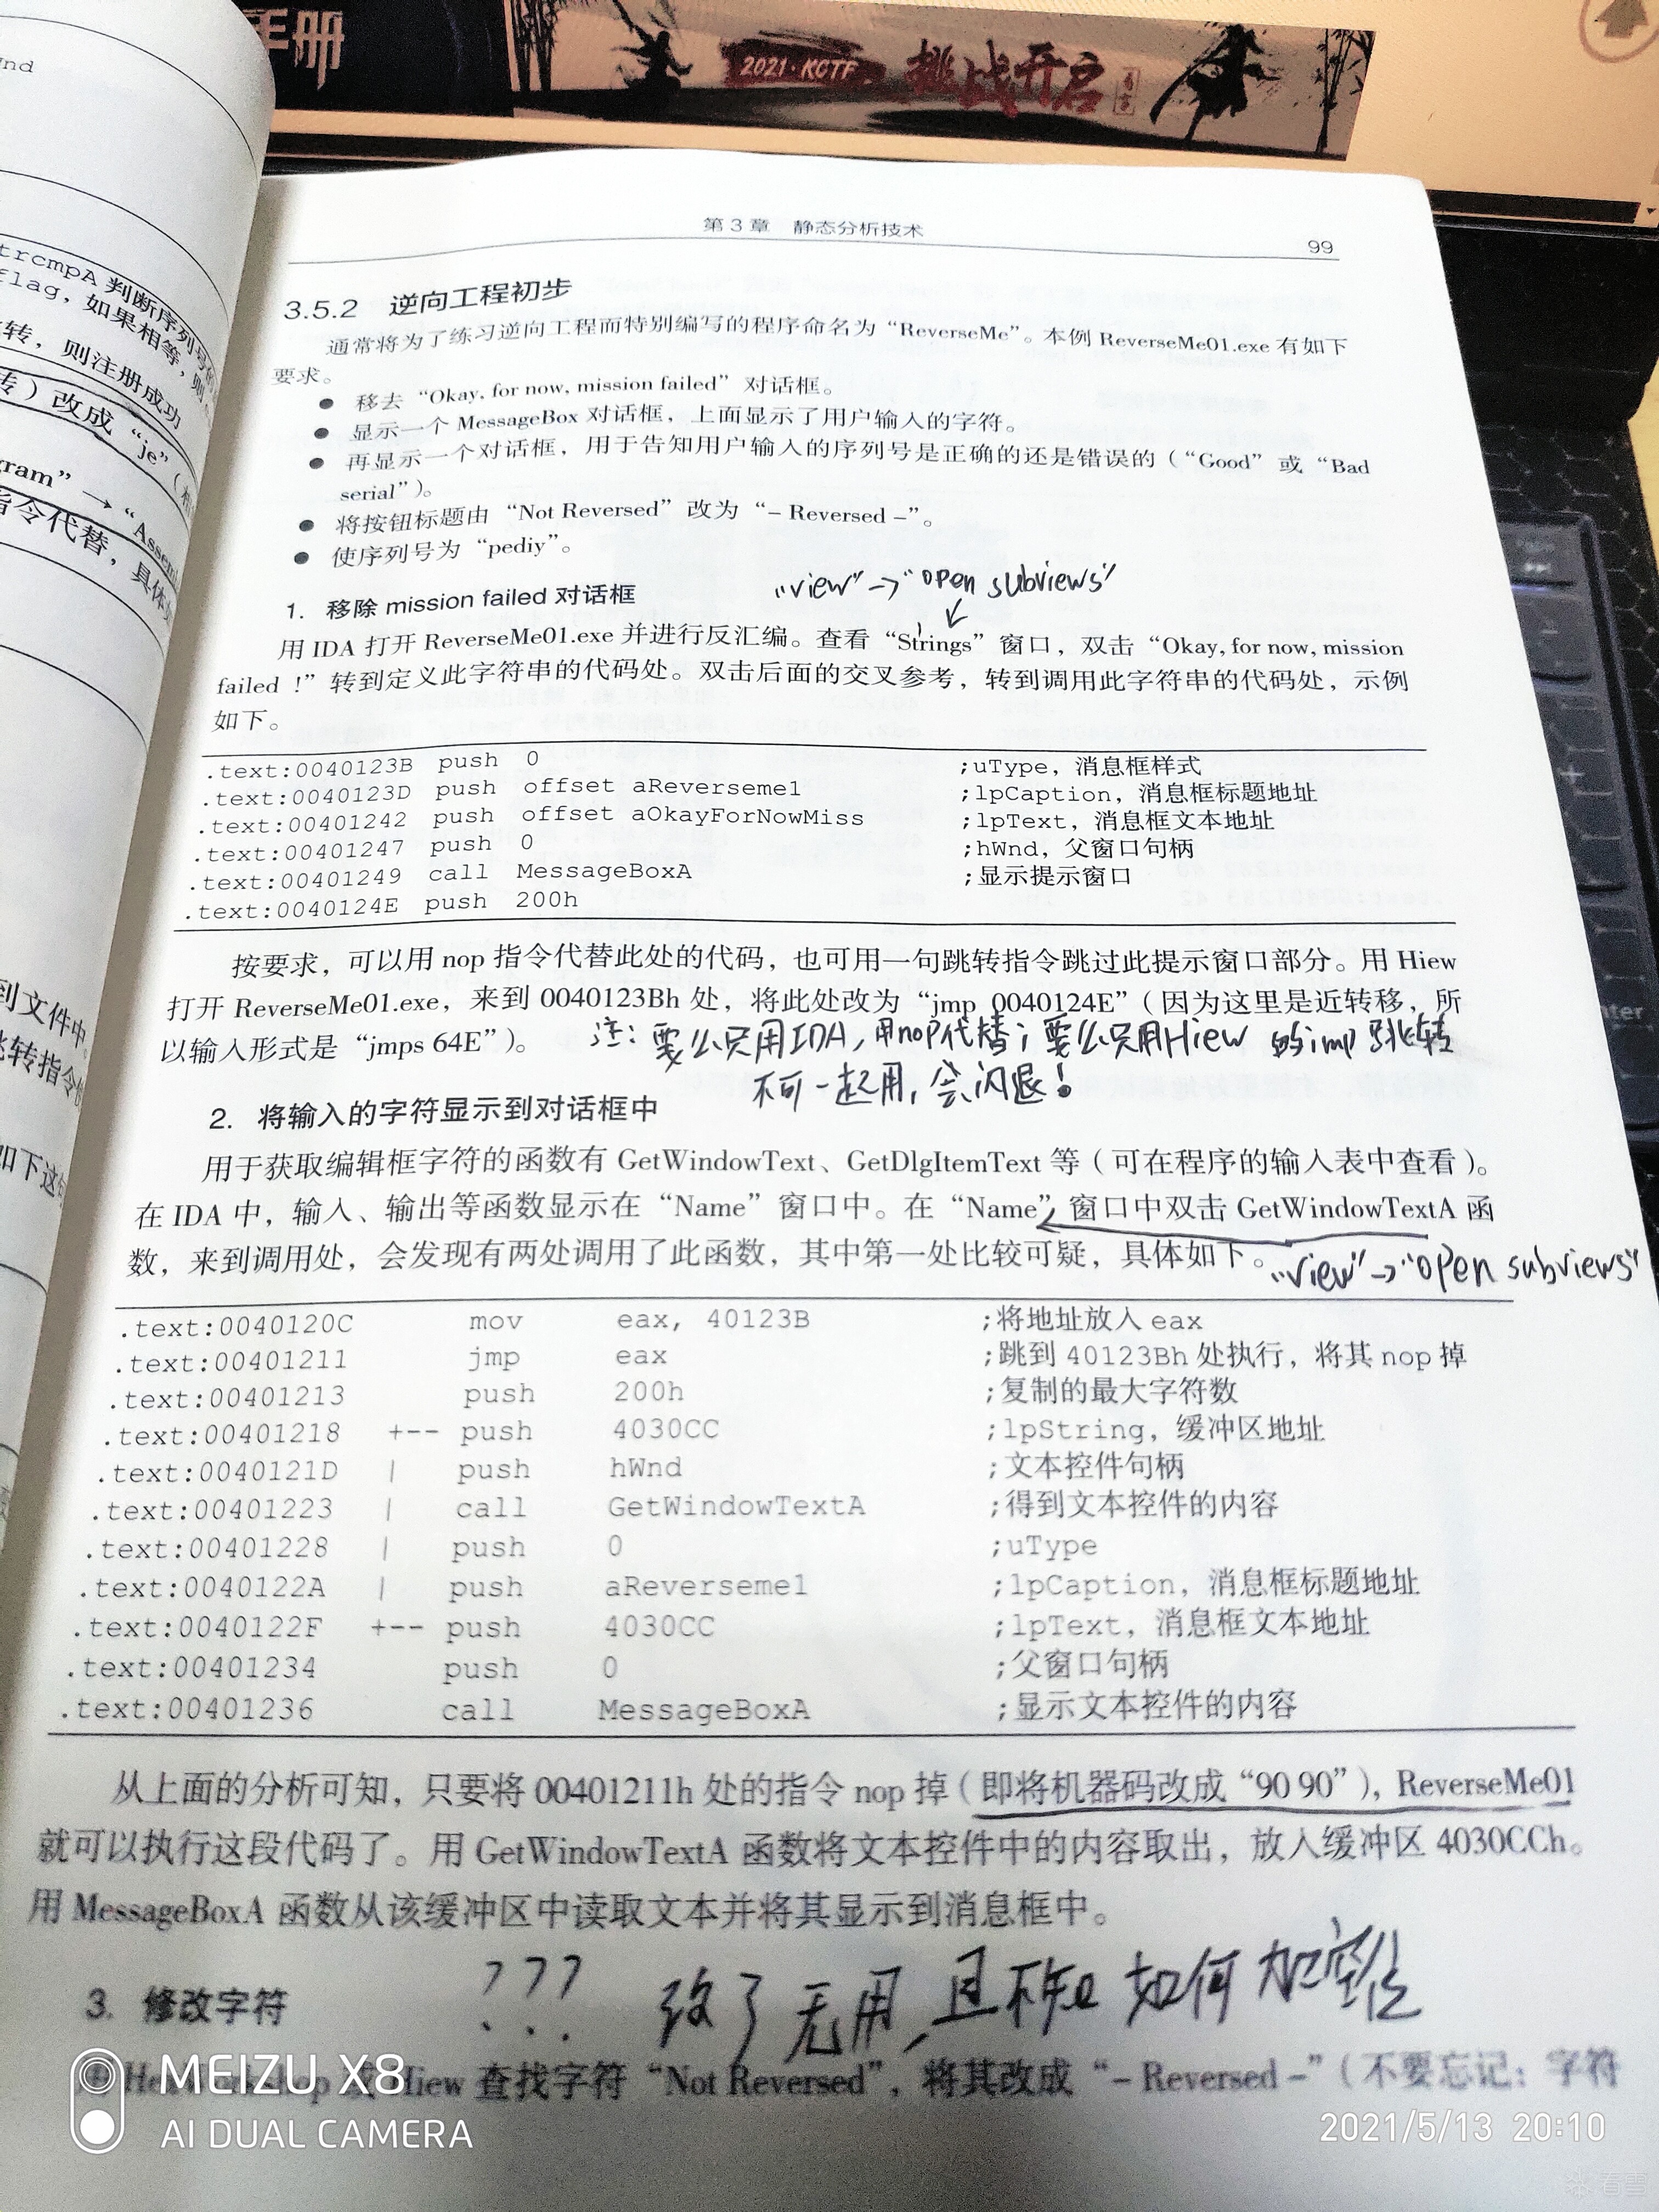 手册
2021·KCTF 挑战开启
nd
trcmpA 判断序列号
flag，如果相等，则
转，则注册成功
转）改成“je”（
ram”→“Assem
指令代替，具体
到文件中
转指令
如下这
第 3 章 静态分析技术
99
3.5.2 逆向工程初步
通常将为了练习逆向工程而特别编写的程序命名为“ReverseMe”。本例 ReverseMe01.exe 有如下
要求。
● 移去“Okay, for now, mission failed”对话框。
● 显示一个 MessageBox 对话框，上面显示了用户输入的字符。
● 再显示一个对话框，用于告知用户输入的序列号是正确的还是错误的（“Good”或“Bad
serial”）。
● 将按钮标题由“Not Reversed”改为“– Reversed –”。
● 使序列号为“pediy”。
"view"→"open subviews"
1. 移除 mission failed 对话框
用 IDA 打开 ReverseMe01.exe 并进行反汇编。查看“Strings”窗口，双击“Okay, for now, mission
failed !”转到定义此字符串的代码处。双击后面的交叉参考，转到调用此字符串的代码处，示例
如下。
.text:0040123B push 0 ;uType，消息框样式
.text:0040123D push offset aReverseme1 ;lpCaption，消息框标题地址
.text:00401242 push offset aOkayForNowMiss ;lpText，消息框文本地址
.text:00401247 push 0 ;hWnd，父窗口句柄
.text:00401249 call MessageBoxA ;显示提示窗口
.text:0040124E push 200h
按要求，可以用 nop 指令代替此处的代码，也可用一句跳转指令跳过此提示窗口部分。用 Hiew
打开 ReverseMe01.exe，来到 0040123Bh 处，将此处改为“jmp 0040124E”（因为这里是近转移，所
以输入形式是“jmps 64E”）。
注：要么只用IDA,用nop代替；要么只用Hiew 的jmp跳转
不可一起用，会闪退！
2. 将输入的字符显示到对话框中
用于获取编辑框字符的函数有 GetWindowText、GetDlgItemText 等（可在程序的输入表中查看）。
在 IDA 中，输入、输出等函数显示在“Name”窗口中。在“Name”窗口中双击 GetWindowTextA 函
数，来到调用处，会发现有两处调用了此函数，其中第一处比较可疑，具体如下。
"view"→"open subviews"
.text:0040120C mov eax, 40123B ;将地址放入 eax
.text:00401211 jmp eax ;跳到 40123Bh 处执行，将其 nop 掉
.text:00401213 push 200h ;复制的最大字符数
.text:00401218 +-- push 4030CC ;lpString，缓冲区地址
.text:0040121D | push hWnd ;文本控件句柄
.text:00401223 | call GetWindowTextA ;得到文本控件的内容
.text:00401228 | push 0 ;uType
.text:0040122A | push aReverseme1 ;lpCaption，消息框标题地址
.text:0040122F +-- push 4030CC ;lpText，消息框文本地址
.text:00401234 push 0 ;父窗口句柄
.text:00401236 call MessageBoxA ;显示文本控件的内容
从上面的分析可知，只要将 00401211h 处的指令 nop 掉（即将机器码改成“90 90”），ReverseMe01
就可以执行这段代码了。用 GetWindowTextA 函数将文本控件中的内容取出，放入缓冲区 4030CCh。
用 MessageBoxA 函数从该缓冲区中读取文本并将其显示到消息框中。
3. 修改字符
??? 改了无用，且不知如何加空位
Hiew 查找字符“Not Reversed”，将其改成“– Reversed –”（不要忘记：字符
MEIZU X8
AI DUAL CAMERA
2021/5/13 20:10
看雪